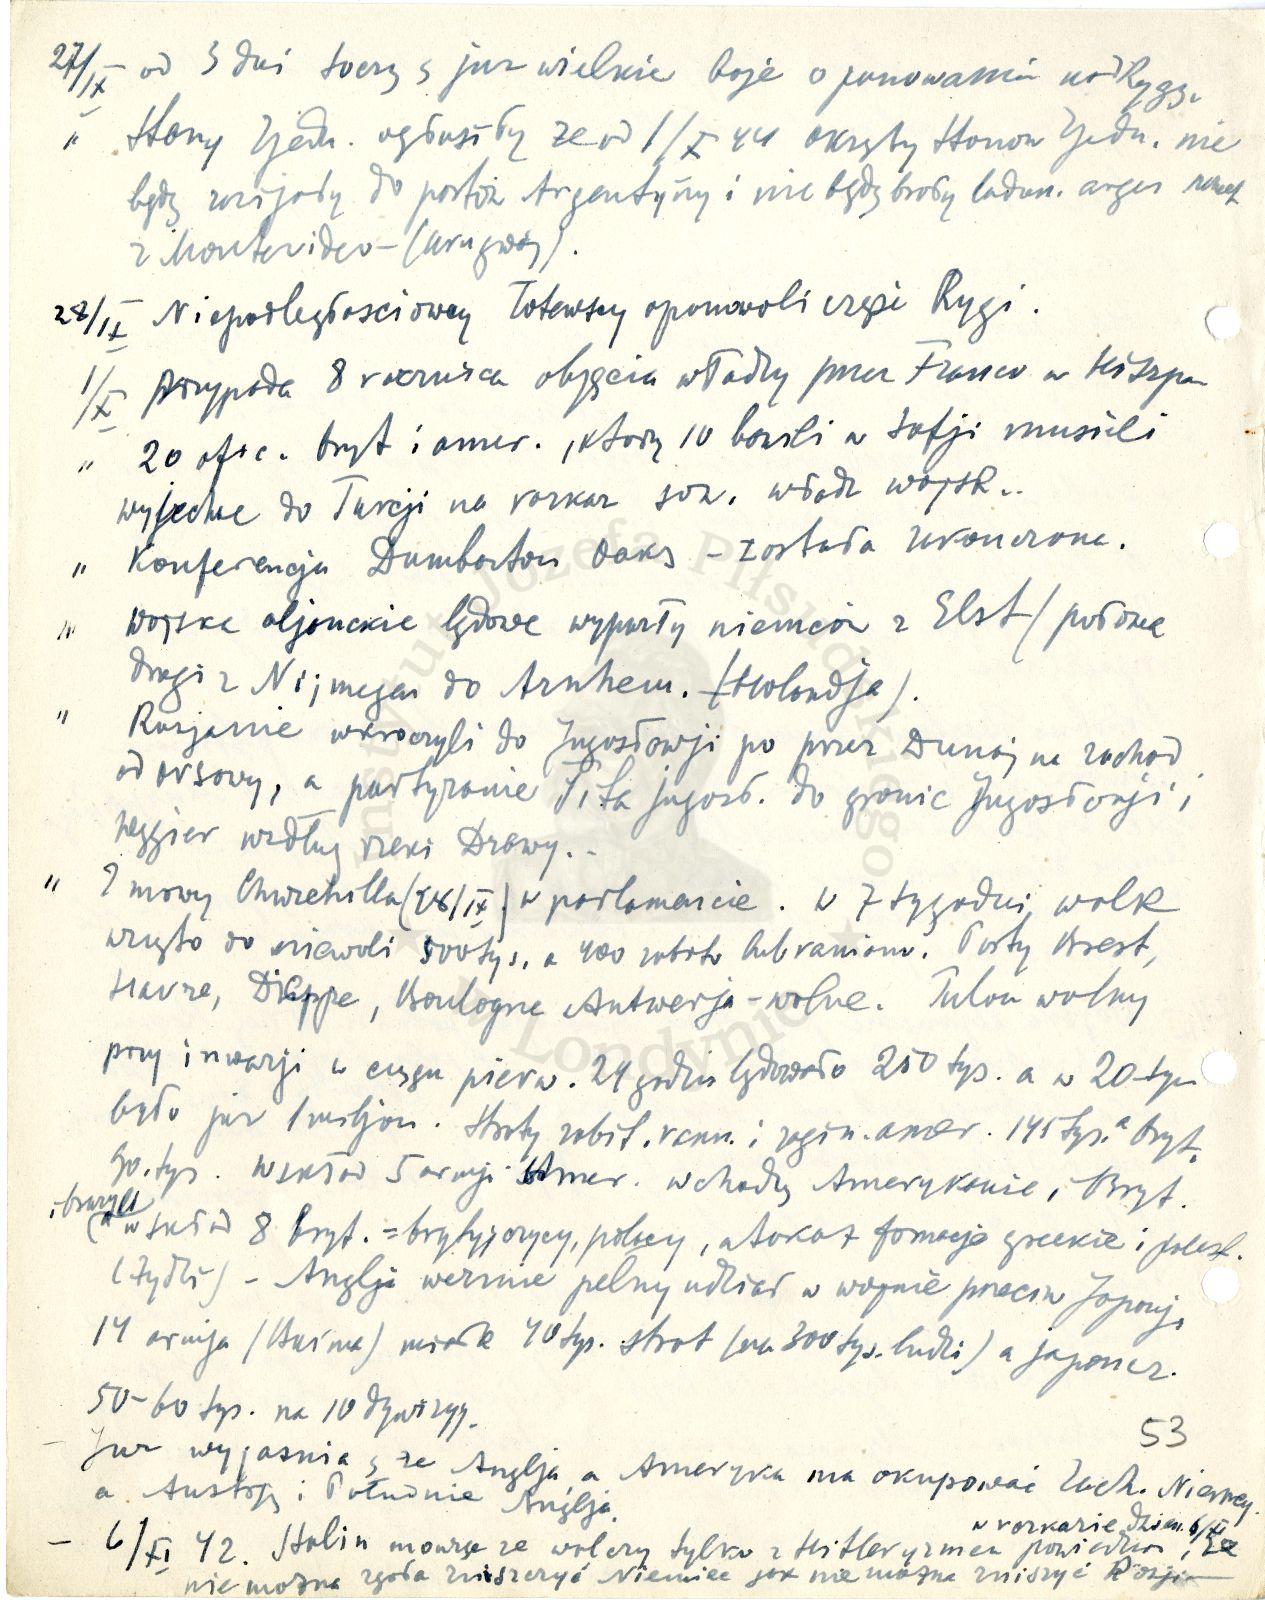 27/IX od 3 dni toczy ś już wielkie boje o panowanie nad Rygą.
" Stany Zjedn. ogłosiły że od 1/X 44 okręty Stanów Zjedn. nie
będą zawijały do portów Argentyny i nie będą brały ładun. argen nawet
z Montevideo – (Urugway).
28/IX Niepodległościowcy Łotewscy opanowali część Rygi.
1/X Przypada 8 rocznica objęcia władzy przez Franco w Hiszpan
" 20 ofic. bryt i amer., którzy bawili w Sofji musieli
wyjechać do Turcji na rozkaz sow. władz wojsk..
" Konferencja Dumbarton Oaks – została zakończona.
" Wojska aljanckie lądowe wyparły niemców z Elst (połowa
drogi z Nijmegen do Arnhem. (Holandja).
" Rosjanie wkroczyli do Jugosłowji po przez Dunaj na zachod
od Orsowy, a partyzanie Tita jugosł. do granic Jugosłowji i
Węgier wzdłuż rzeki Drawy..
" Z mowy Churchilla (28/IX) w parlamencie. W 7 tygodni walk
wzięto do niewoli 500 tys. a 400 zabito lub raniono. Porty Brest,
Havre, Dieppe, Boulogne Antwerja – wolne. Tulon wolny
przy inwazji w ciągu pierw. 24 godzin lądowało 250 tys. a w 20-tym
było już 1 miljon. Straty zabit. rann. i zagin. amer. 145 tys. a bryt.
90. tys. W skład 5 armji Amer. wchodzą Amerykanie, i Bryt.
i brazyl
a w skład 8 bryt. = brytyjczycy, polacy, a także formacje greckie i palest.
(żydzi) – Anglja weźmie pełny udział w wojnie przeciw Japonji
14 armja (Burma) miała 40 tys. strat (na 300 tys. ludzi) a japoncz.
50–60 tys. na 10 dywizyj.
53
– Już wyjaśnia ś że Anglja a Ameryka ma okupować Zach. Niemcy
a Austrję i Południe Anglja.
– 6/XI 42. Stalin mówią że walczy tylko z Hitleryzmem powiedział, że
w rozkazie dzien. 6/XI
nie można zgoła zniszczyć Niemiec jak nie można zniszczyć Rosji